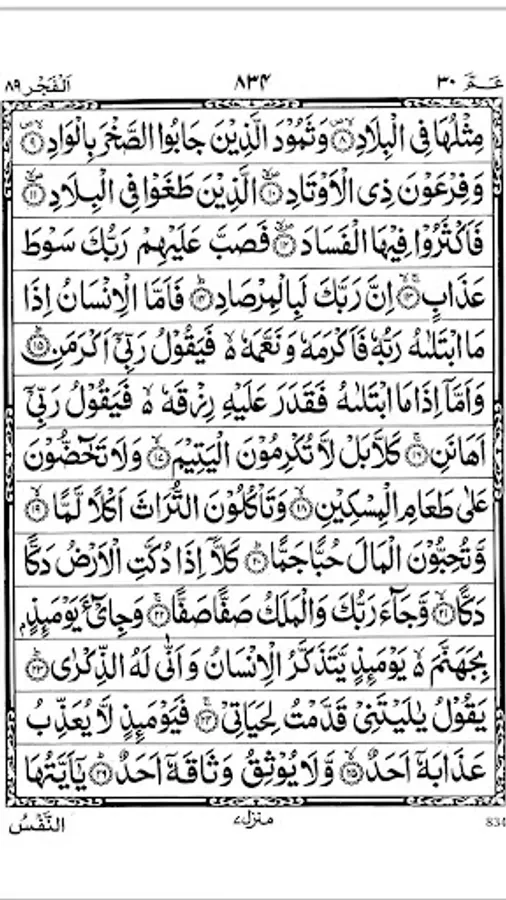 عَمَّ ٣٠ ٨٣۴ اَلْفَجْر ٨٩
مِثْلُهَا فِى الْبِلَادِ ۝٨ وَثَمُوْدَ الَّذِيْنَ جَابُوا الصَّخْرَ بِالْوَادِ ۝٩
وَفِرْعَوْنَ ذِى الْاَوْتَادِ ۝١٠ الَّذِيْنَ طَغَوْا فِى الْبِلَادِ ۝١١
فَاَكْثَرُوْا فِيْهَا الْفَسَادَ ۝١٢ فَصَبَّ عَلَيْهِمْ رَبُّكَ سَوْطَ
عَذَابٍ ۝١٣ اِنَّ رَبَّكَ لَبِالْمِرْصَادِ ۝١٤ فَاَمَّا الْاِنْسَانُ اِذَا
مَا ابْتَلٰىهُ رَبُّهٗ فَاَكْرَمَهٗ وَنَعَّمَهٗ ۙ فَيَقُوْلُ رَبِّىْٓ اَكْرَمَنِ ۝١٥
وَاَمَّآ اِذَا مَا ابْتَلٰىهُ فَقَدَرَ عَلَيْهِ رِزْقَهٗ ۙ فَيَقُوْلُ رَبِّىْٓ
اَهَانَنِ ۝١٦ كَلَّا بَلْ لَّا تُكْرِمُوْنَ الْيَتِيْمَ ۝١٧ وَلَا تَحٰٓضُّوْنَ
عَلٰى طَعَامِ الْمِسْكِيْنِ ۝١٨ وَتَاْكُلُوْنَ التُّرَاثَ اَكْلًا لَّمًّا ۝١٩
وَّتُحِبُّوْنَ الْمَالَ حُبًّا جَمًّا ۝٢٠ كَلَّآ اِذَا دُكَّتِ الْاَرْضُ دَكًّا
دَكًّا ۝٢١ وَّجَآءَ رَبُّكَ وَالْمَلَكُ صَفًّا صَفًّا ۝٢٢ وَجِاىْٓءَ يَوْمَئِذٍۭ
بِجَهَنَّمَ ۙ يَوْمَئِذٍ يَّتَذَكَّرُ الْاِنْسَانُ وَاَنّٰى لَهُ الذِّكْرٰى ۝٢٣
يَقُوْلُ يٰلَيْتَنِىْ قَدَّمْتُ لِحَيَاتِىْ ۝٢٤ فَيَوْمَئِذٍ لَّا يُعَذِّبُ
عَذَابَهٗٓ اَحَدٌ ۝٢٥ وَّلَا يُوْثِقُ وَثَاقَهٗٓ اَحَدٌ ۝٢٦ يٰٓاَيَّتُهَا
النَّفْسُ منزل ٧ 834